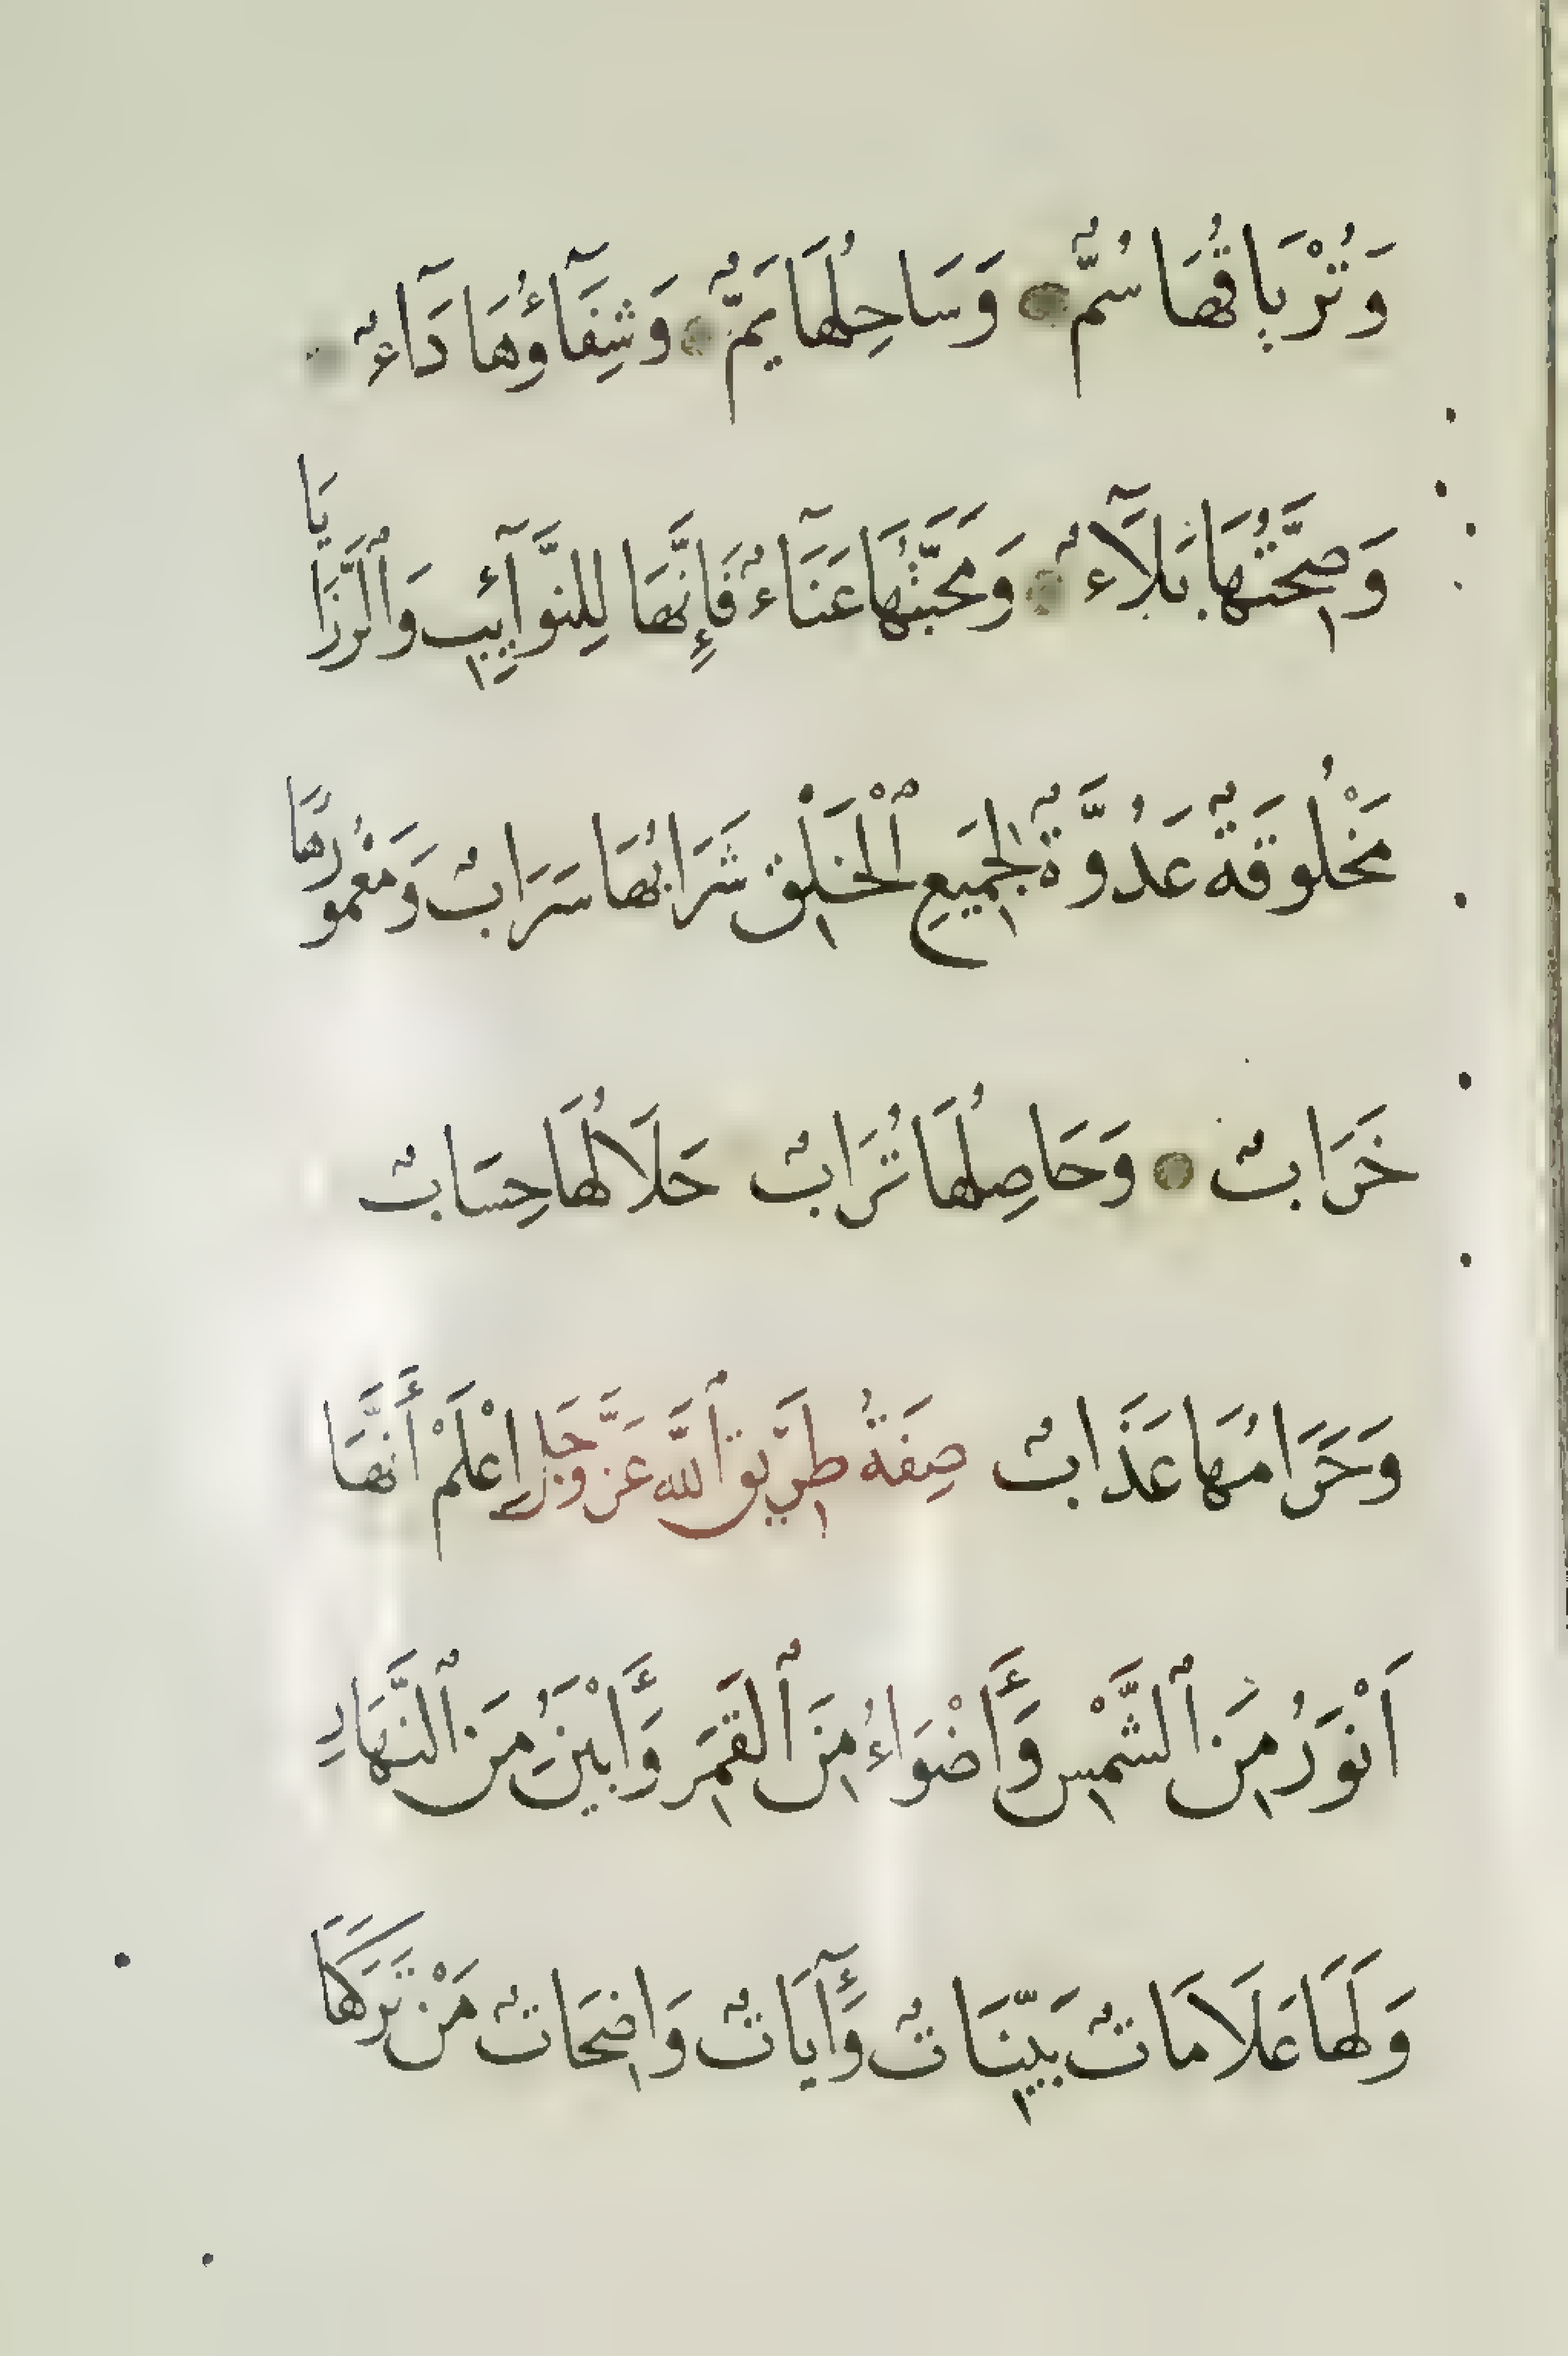 وَتُرْيَاقُهَا سُمٌّ وَسَاحِلُهَا يَمٌّ وَشِفَآءُوهَا دَآءٌ
وَصِحَّتُهَا بَلَآءٌ وَمَحَبَّتُهَا عَنَآءٌ فَإِنَّهَا لِلنَّوَآئِبِ وَٱلرَّزَايَا
مَخْلُوقَةٌ عَدُوَّةٌ لِجَمِيعِ ٱلْخَلْقِ شَرَابُهَا سَرَابٌ وَمَعْمُورُهَا
خَرَابٌ وَحَاصِلُهَا تُرَابٌ حَلَالُهَا حِسَابٌ
وَحَرَامُهَا عَذَابٌ صِفَةُ طَرِيقِ ٱللَّهِ عَزَّ وَجَلَّ اِعْلَمْ أَنَّهَا
اَنْوَرُ مِنَ ٱلشَّمْسِ وَأَضْوَاءُ مِنَ ٱلْقَمَرِ وَأَبْيَنُ مِنَ ٱلنَّهَارِ
وَلَهَا عَلَامَاتٌ بَيِّنَاتٌ وَآيَاتٌ وَاضِحَاتٌ مَنْ تَرَكَهَا